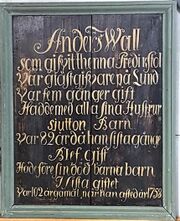 Anders Wall
som gifvit thenna Predikstol
Var gjästgifvare på Lund
Var fem gånger gift
Hadde med alla sina Hustrur
sjutton Barn
Var 82 år då han sista gånge
Blef Gift
Hade före sin död barna barn
I sista giftet
Var 102 år gamal när han afled år 1758